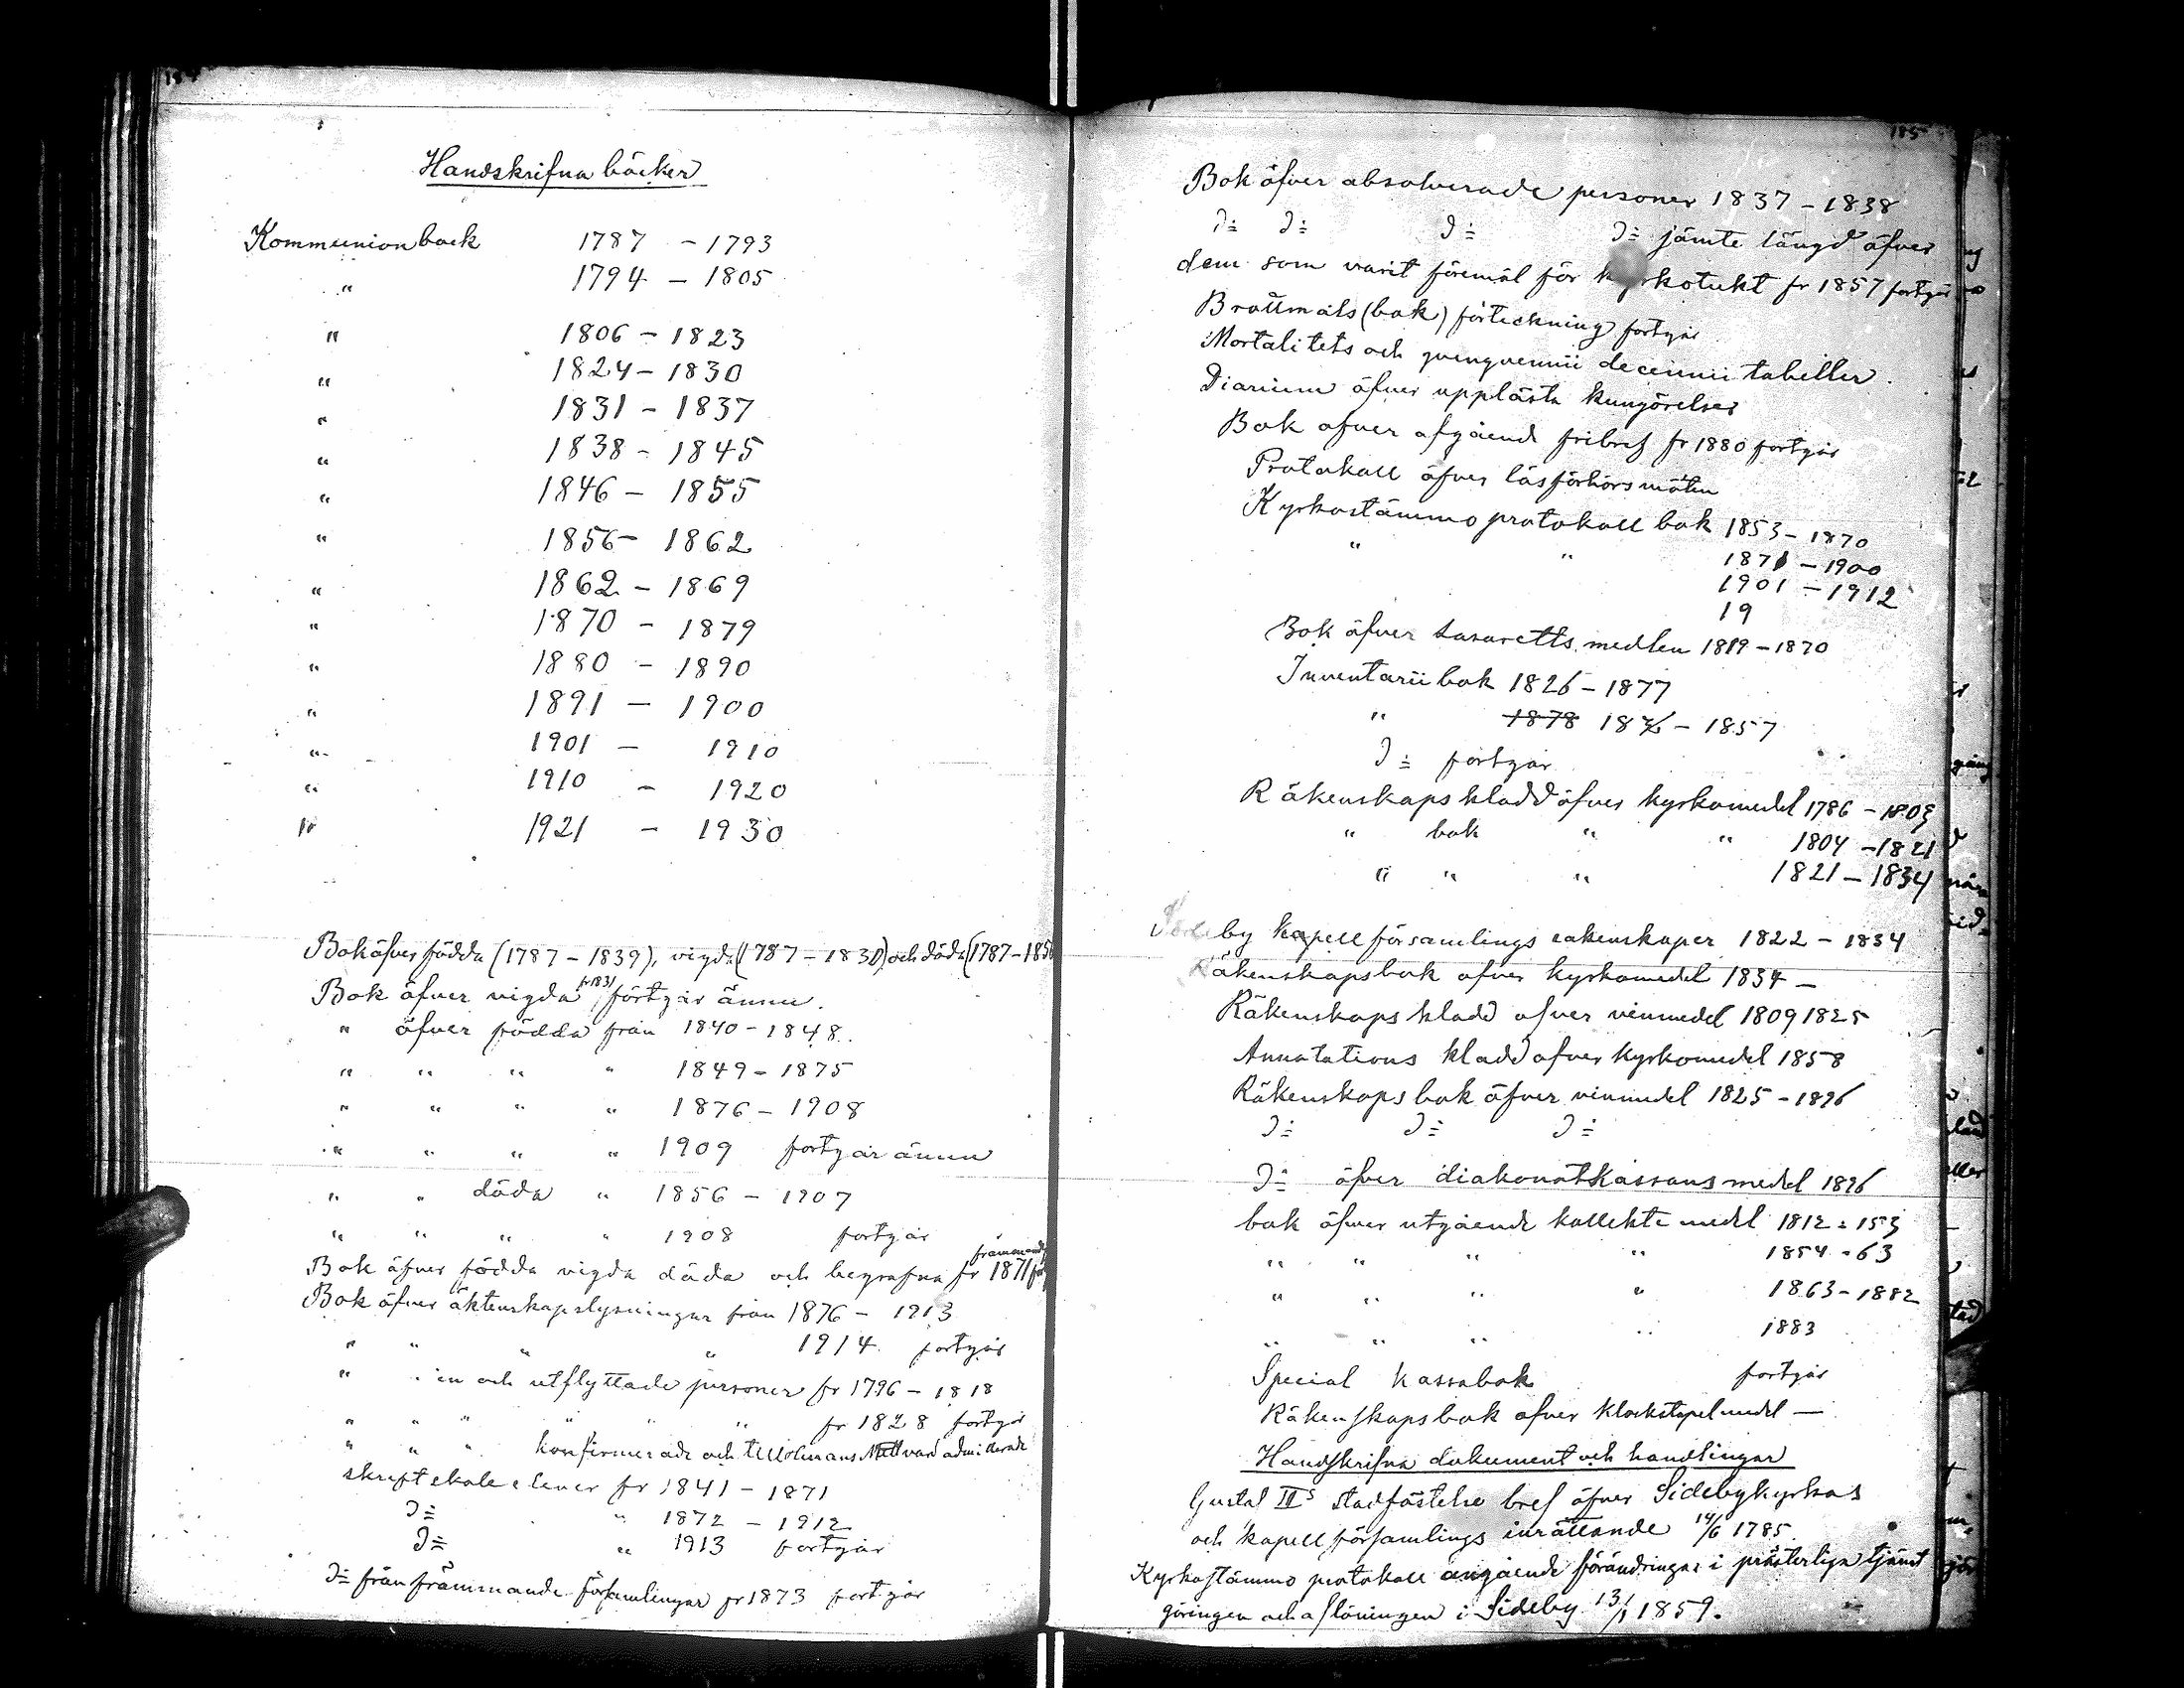 Handskrifna böcker
Kommunionbock 1787 - 1793
" 1794 - 1805
" 1806 - 1823
" 1824 - 1830
" 1831 - 1837
" 1838 - 1845
" 1846 - 1855
" 1856 - 1862
" 1862 - 1869
" 1870 - 1879
" 1880 - 1890
" 1891 - 1900
" 1901 - 1910
" 1910 - 1920
" 1921 - 1930
Bok öfver födda (1787 - 1839), vigda (1787 - 1830) och döda (1787 - 185
Bok öfver vigda fr 1831 fortgår ännu.
" öfver födda från 1840 - 1848.
" " " " 1849 - 1875
" " " " 1876 - 1908
" " " " 1909 fortgår ännu
" " döda " 1856 - 1907
" " " " 1908 fortgår
Bok öfver födda vigda döda och begrafna främmande fr 1871
Bok öfver äktenskapslysningar från 1876 - 1913
" " " " 1914 fortgår
" " in och utflyttade personer fr 1796 - 1818
" " " " " " fr 1828 fortgår
" " " konfirmerade och till Herrans Nattvard admitterade
skriftskole elever fr 1841 - 1871
D:o " 1872 - 1912
D:o " 1913 fortgår
D:o från främmande församlingar fr 1873 fortgår
185
Bok öfver absolverade personer 1837 - 1838
D:o D:o D:o D:o jämte längd öfver
dem som varit föremål för kyrkotukt fr 1857 fortgår
Brottmåls (bok) förteckning fortgår
Mortalitets och qvinqvennii decennii tabeller.
Diarium öfver upplästa kungörelser
Bok öfver afgående fribref fr 1880 fortgår
Protokoll öfver läsförhörsmöten
Kyrkostämmo protokoll bok 1853 - 1870
" " 1871 - 1900
1901 - 1912
19
Bok öfver Lasaretts medlen 1819 - 1870
Inventarii bok 1826 - 1877
" 1878 - 1857
D:o fortgår
Räkenskaps kladd öfver kyrkomedel 1786 - 1803
" bok " " 1804 - 1821
" " " 1821 - 1834
by kapellförsamlings räkenskaper 1822 - 1834
Räkenskapsbok öfver kyrkomedel 1834 -
Räkenskaps kladd öfver vinmedel 1809 1825
Annotations kladd öfver kyrkomedel 1858
Räkenskaps bok öfver vinmedel 1825 - 1896
D:o D:o D:o
D:o öfver diakonatkassans medel 1896
bok öfver utgående kollekte medel 1812 - 153
" " " " 1854 - 63
" " " " 1863 - 1882
" " " " 1883
Special Kassabok fortgår
Räkenskapsbok öfver klockstapelmedel -
Handskrifna dokument och handlingar
Gustaf III:s stadfästelse bref öfver Sidebykyrkas
och kapellförsamlings inrättande 14/6 1785.
Kyrkostämmo protokoll angående förändringar i prästerliga tjänst
göringen och aflöningen i Sideby 13/1 1859.